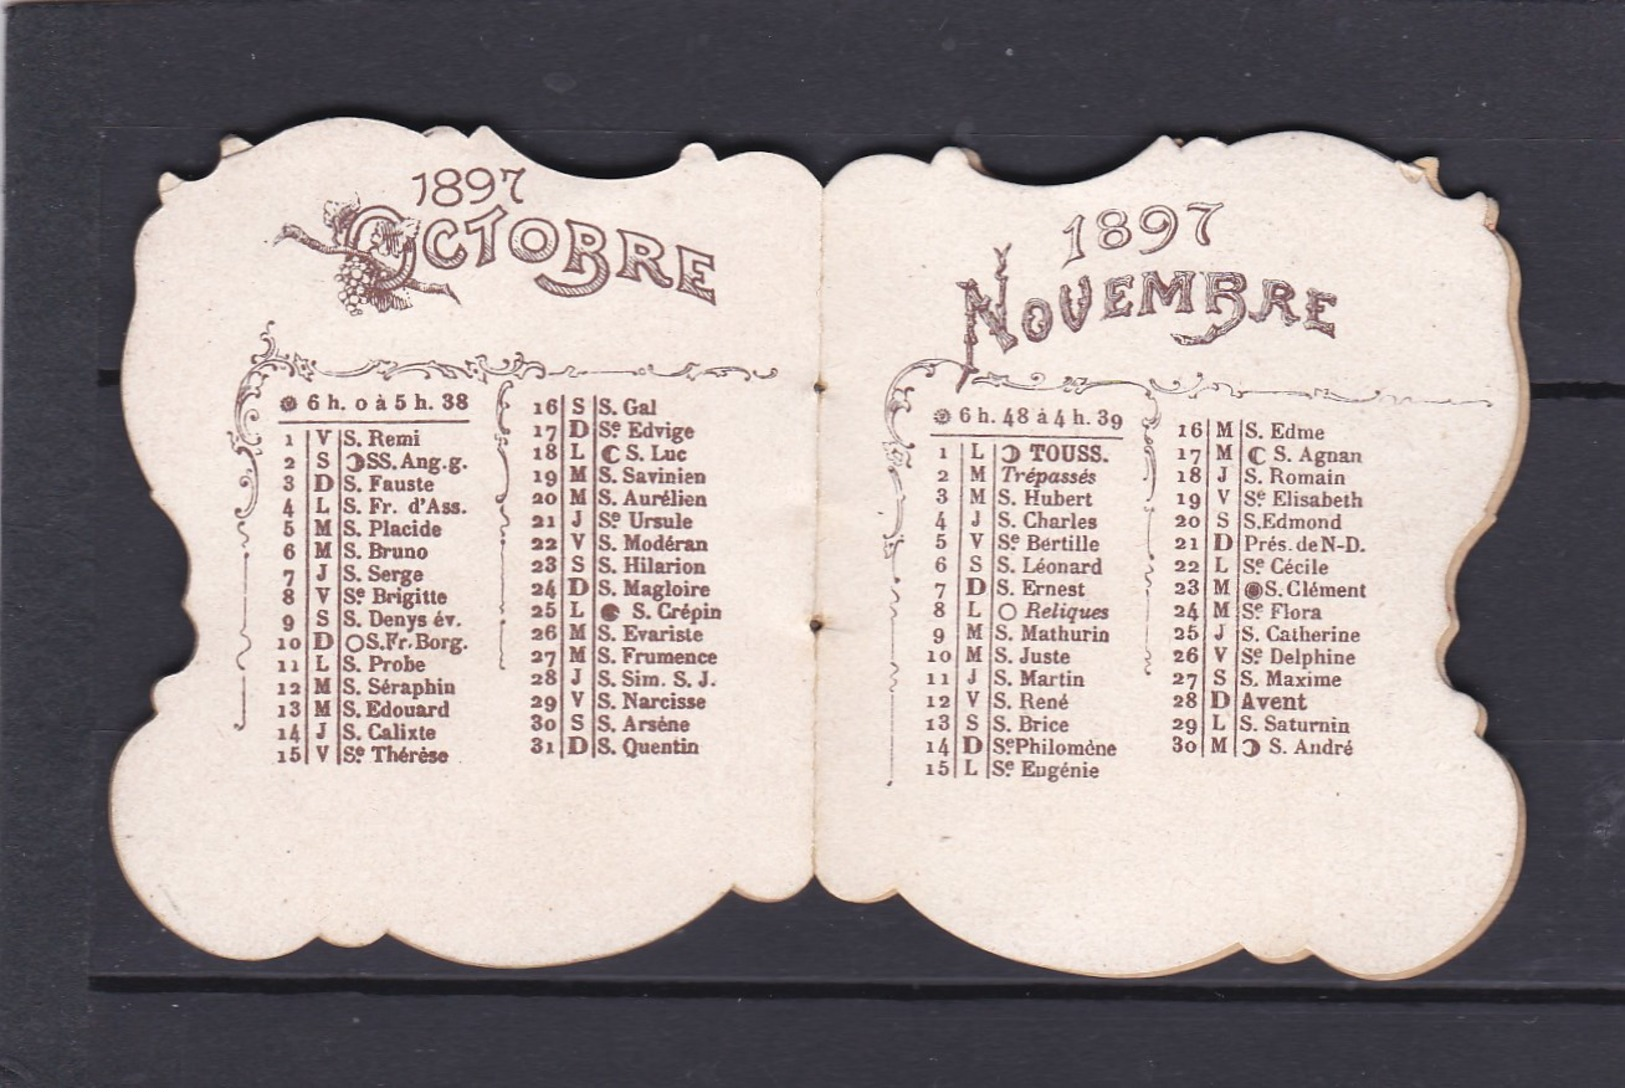 1897
OCTOBRE
6 h. 0 à 5 h. 38
1 V S. Remi
2 S SS. Ang.g.
3 D S. Fauste
4 L S. Fr. d'Ass.
5 M S. Placide
6 M S. Bruno
7 J S. Serge
8 V Sᵉ Brigitte
9 S S. Denys év.
10 D S.Fr.Borg.
11 L S. Probe
12 M S. Séraphin
13 M S. Edouard
14 J S. Calixte
15 V Sᵉ Thérèse
16 S S. Gal
17 D Sᵉ Edvige
18 L S. Luc
19 M S. Savinien
20 M S. Aurélien
21 J Sᵉ Ursule
22 V S. Modéran
23 S S. Hilarion
24 D S. Magloire
25 L S. Crépin
26 M S. Evariste
27 M S. Frumence
28 J S. Sim. S. J.
29 V S. Narcisse
30 S S. Arsène
31 D S. Quentin
1897
NOVEMBRE
6 h. 48 à 4 h. 39
1 L TOUSS.
2 M Trépassés
3 M S. Hubert
4 J S. Charles
5 V Sᵉ Bertille
6 S S. Léonard
7 D S. Ernest
8 L Reliques
9 M S. Mathurin
10 M S. Juste
11 J S. Martin
12 V S. René
13 S S. Brice
14 D SᵉPhilomène
15 L Sᵉ Eugénie
16 M S. Edme
17 M S. Agnan
18 J S. Romain
19 V Sᵉ Elisabeth
20 S S.Edmond
21 D Prés. de N-D.
22 L Sᵉ Cécile
23 M S. Clément
24 M Sᵉ Flora
25 J S. Catherine
26 V Sᵉ Delphine
27 S S. Maxime
28 D Avent
29 L S. Saturnin
30 M S. André